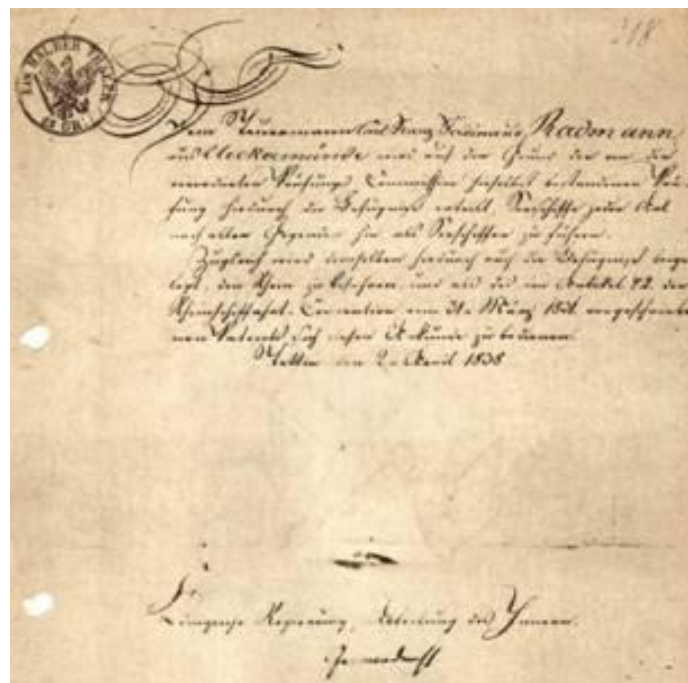 218
EIN HALBER THALER
15 GR.
Dem Steuermann Carl Franz Ferdinand Radmann
aus Ueckermünde wird auf den Grund der von der
verordneten Prüfungs Commission hieselbst bestandenen Prü-
fung hierdurch die Befugniß ertheilt, Seeschiffe jeder Art
nach allen Gegenden hin als Seeschiffer zu führen.
Zugleich wird demselben hierdurch auch die Befugniß beige-
legt, den Rhein zu befahren, und als des im Artikel 42. der
Rheinschifffahrt. Convention vom 31. März 1831. vorgeschriebe-
nen Patents sich dieser Urkunde zu bedienen.
Stettin den 2. April 1838
Königliche Regierung, Abtheilung des Innern.